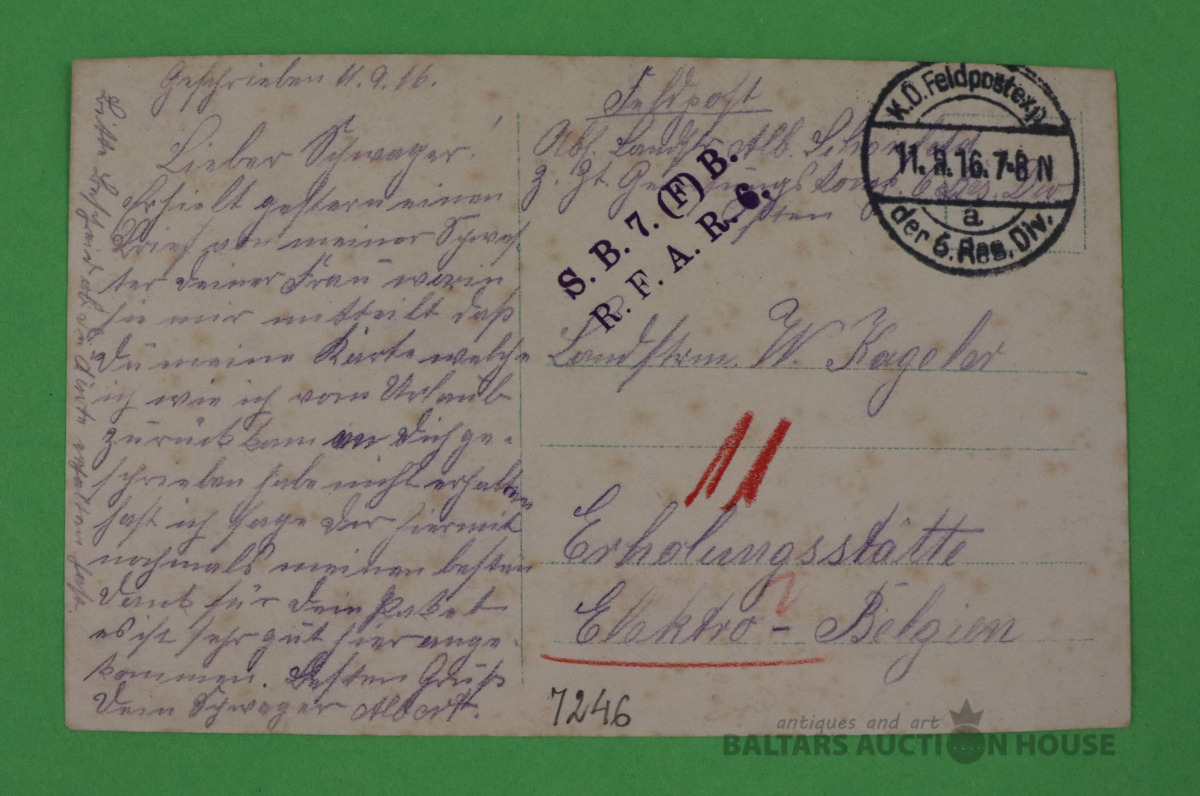 Geschrieben 11.9.16.
Lieber Schwager!
Erhielt gestern einen
Brief von meiner Schwes
ter deiner Frau worin
sie mir mitteilt daß
Du meine Karte welche
ich wie ich vom Urlaub
zurück kam an Dich ge-
schrieben habe nicht erhalten
hast ich sage Dir hiermit
nochmals meinen besten
Dank für dein Paket
es ist sehr gut hier ange-
kommen. Besten Gruß
Dein Schwager Albert.
Bitte
Feldpost
Abs. Landstr. Alb.
z. Zt.
Osten
K.D.Feldpostexp.
11.9.16.7-8N
a
der 6.Res.Div.
S. B. 7. (F) B.
R. F. A. R. 6.
Landstrm. W. Kageler
11
Erholungsstätte
Elektro - Belgien
7246
antiques and art
BALTARS AUCTION HOUSE